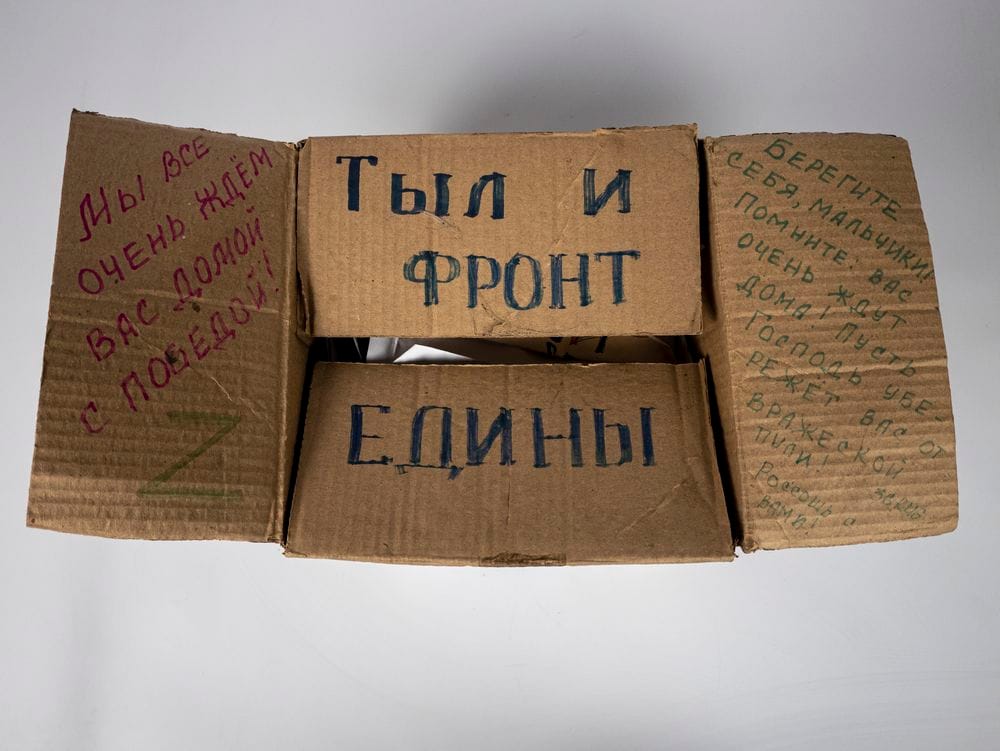 Мы все
очень ждём
вас домой
с победой!
Z
Тыл и
фронт
едины
Берегите
себя, мальчики!
Помните: вас
очень ждут
дома! Пусть
Господь убе
режёт вас от
вражеской
пули!
Россошь с
вами!